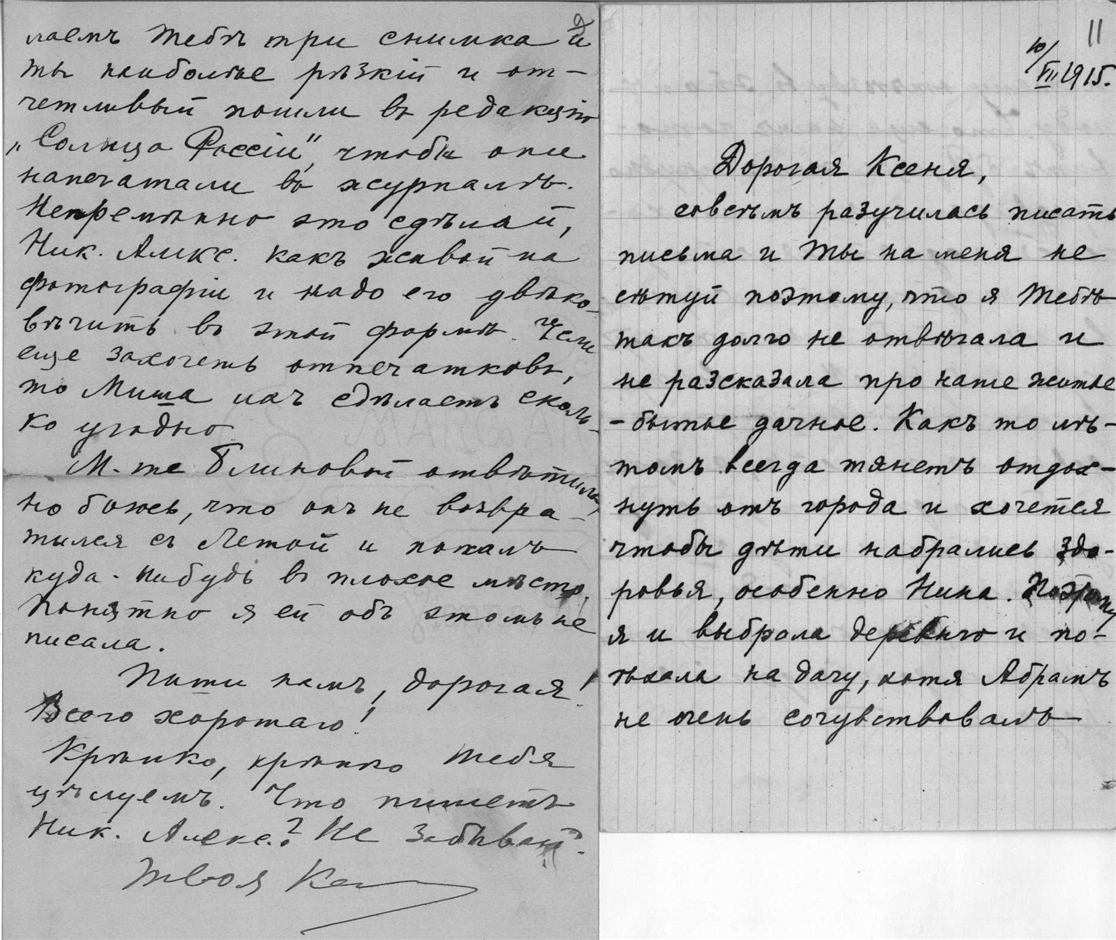 лаемъ тебѣ три снимка и
ты наиболѣе рѣзкій и от-
четливый пошли въ редакцію
„Солнца Россіи", чтобы они
напечатали въ журналѣ.
Непремѣнно это сдѣлай,
Ник. Алкс. какъ живой на
фотографіи и надо его увѣко-
вѣчить въ этой формѣ.
еще захочетъ отпечатковъ,
то Миша нач сдѣлаетъ сколь-
ко угодно.
М-me Блиновой отвѣтила,
но боюсь, что онъ не возвра-
тился съ Летой и попалъ
куда-нибудь въ плохое мѣсто.
Понятно я ей объ этомъ не
писала.
Пиши намъ, дорогая!
Всего хорошаго!
Крѣпко, крѣпко тебя
цѣлуемъ. Что пишетъ
Ник. Алекс.? Не забывай.
Твоя
11
10/VII 1915.
Дорогая Ксеня,
совсѣмъ разучилась писать
письма и Ты на меня не
сѣтуй поэтому, что я Тебѣ
такъ долго не отвѣчала и
не разсказала про наше житье
-бытье дачное. Какъ то лѣ-
томъ всегда тянетъ отдох-
нуть отъ города и хочется
чтобы дѣти набрались здо-
ровья, особенно Нина. Поэтому
я и выбрала деревню и по-
ѣхала на дачу, хотя Абрамъ
не очень сочувствовалъ